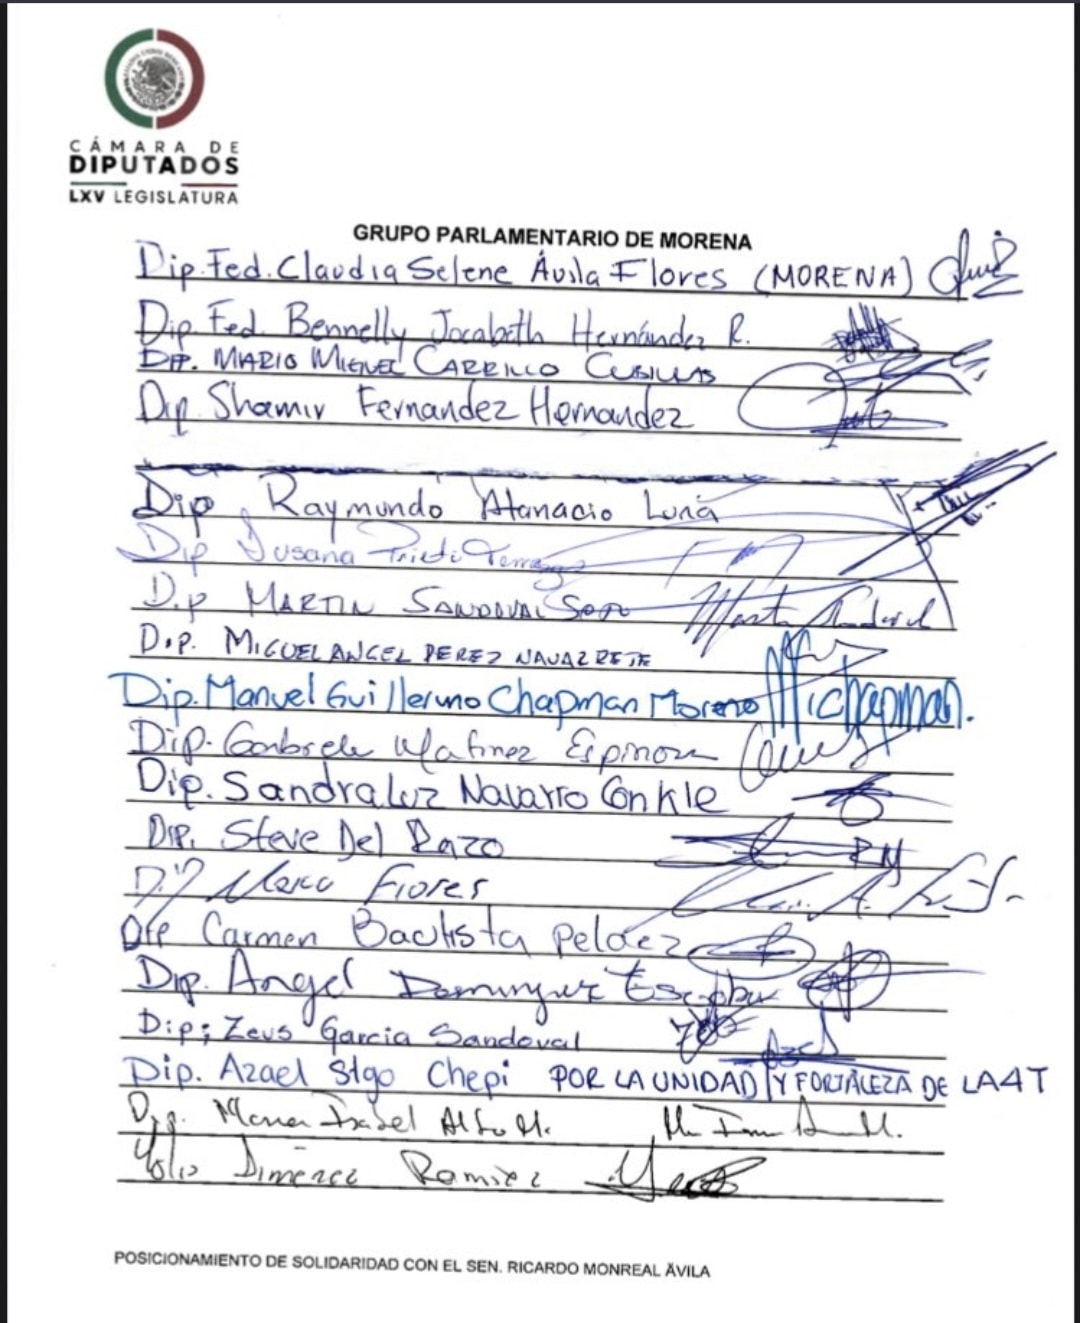 CÁMARA DE
DIPUTADOS
LXV LEGISLATURA
GRUPO PARLAMENTARIO DE MORENA
Dip. Fed. Claudia Selene Ávila Flores (MORENA)
Dip Fed. Bennelly Jocabeth Hernández R.
DIP. MARIO MIGUEL CARRILLO CUBILLAS
Dip. Shamir Fernandez Hernandez
Dip Raymundo Atanacio Luna
Dip Susana Prieto Terrazas
Dip MARTIN SANDOVAL SOTO
DIP. MIGUEL ANGEL PEREZ NAVARRETE
Dip. Manuel Guillermo Chapman Moreno MChapman.
Dip. Gabriela Martinez Espinoza
Dip. Sandra Luz Navarro Conkle
Dip. Steve Del Razo
Dip Marco Flores
Dip Carmen Bautista Pelaez
Dip. Angel Dominguez Escobar
Dip; Zeus Garcia Sandoval
Dip. Azael Stgo Chepi POR LA UNIDAD Y FORTALEZA DE LA 4T
Dip. Maria Isabel Alfaro M.
Yolis Jiménez Ramirez
POSICIONAMIENTO DE SOLIDARIDAD CON EL SEN. RICARDO MONREAL ÁVILA